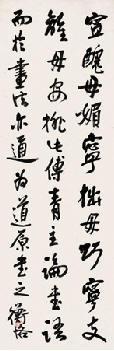 宜醜毋媚寧拙毋巧寧支
離毋安排此傅青主論書語
而於畫法亦通為道原書之衡恪